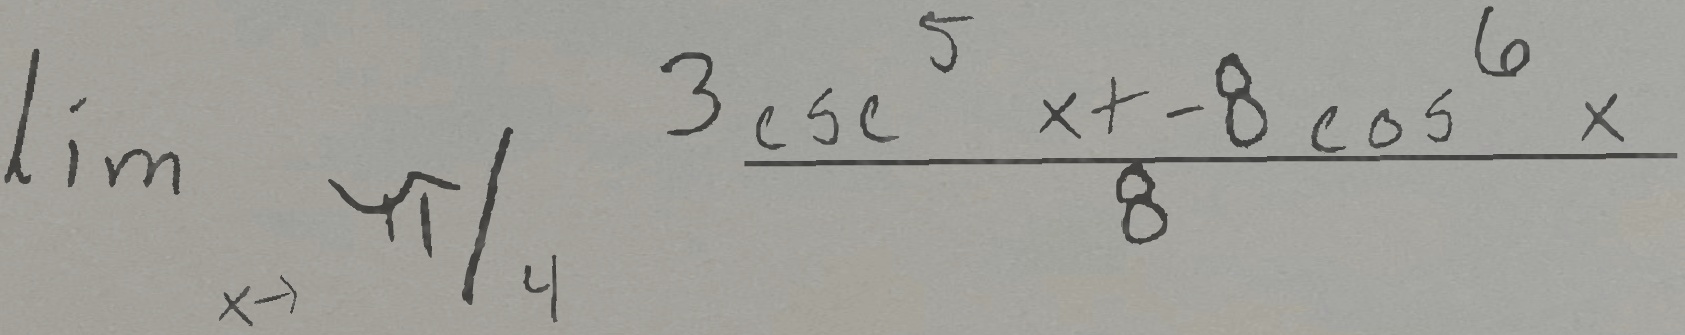 \lim_{x \to \pi/4} \frac{3 \csc^5 x + -8 \cos^6 x}{8}